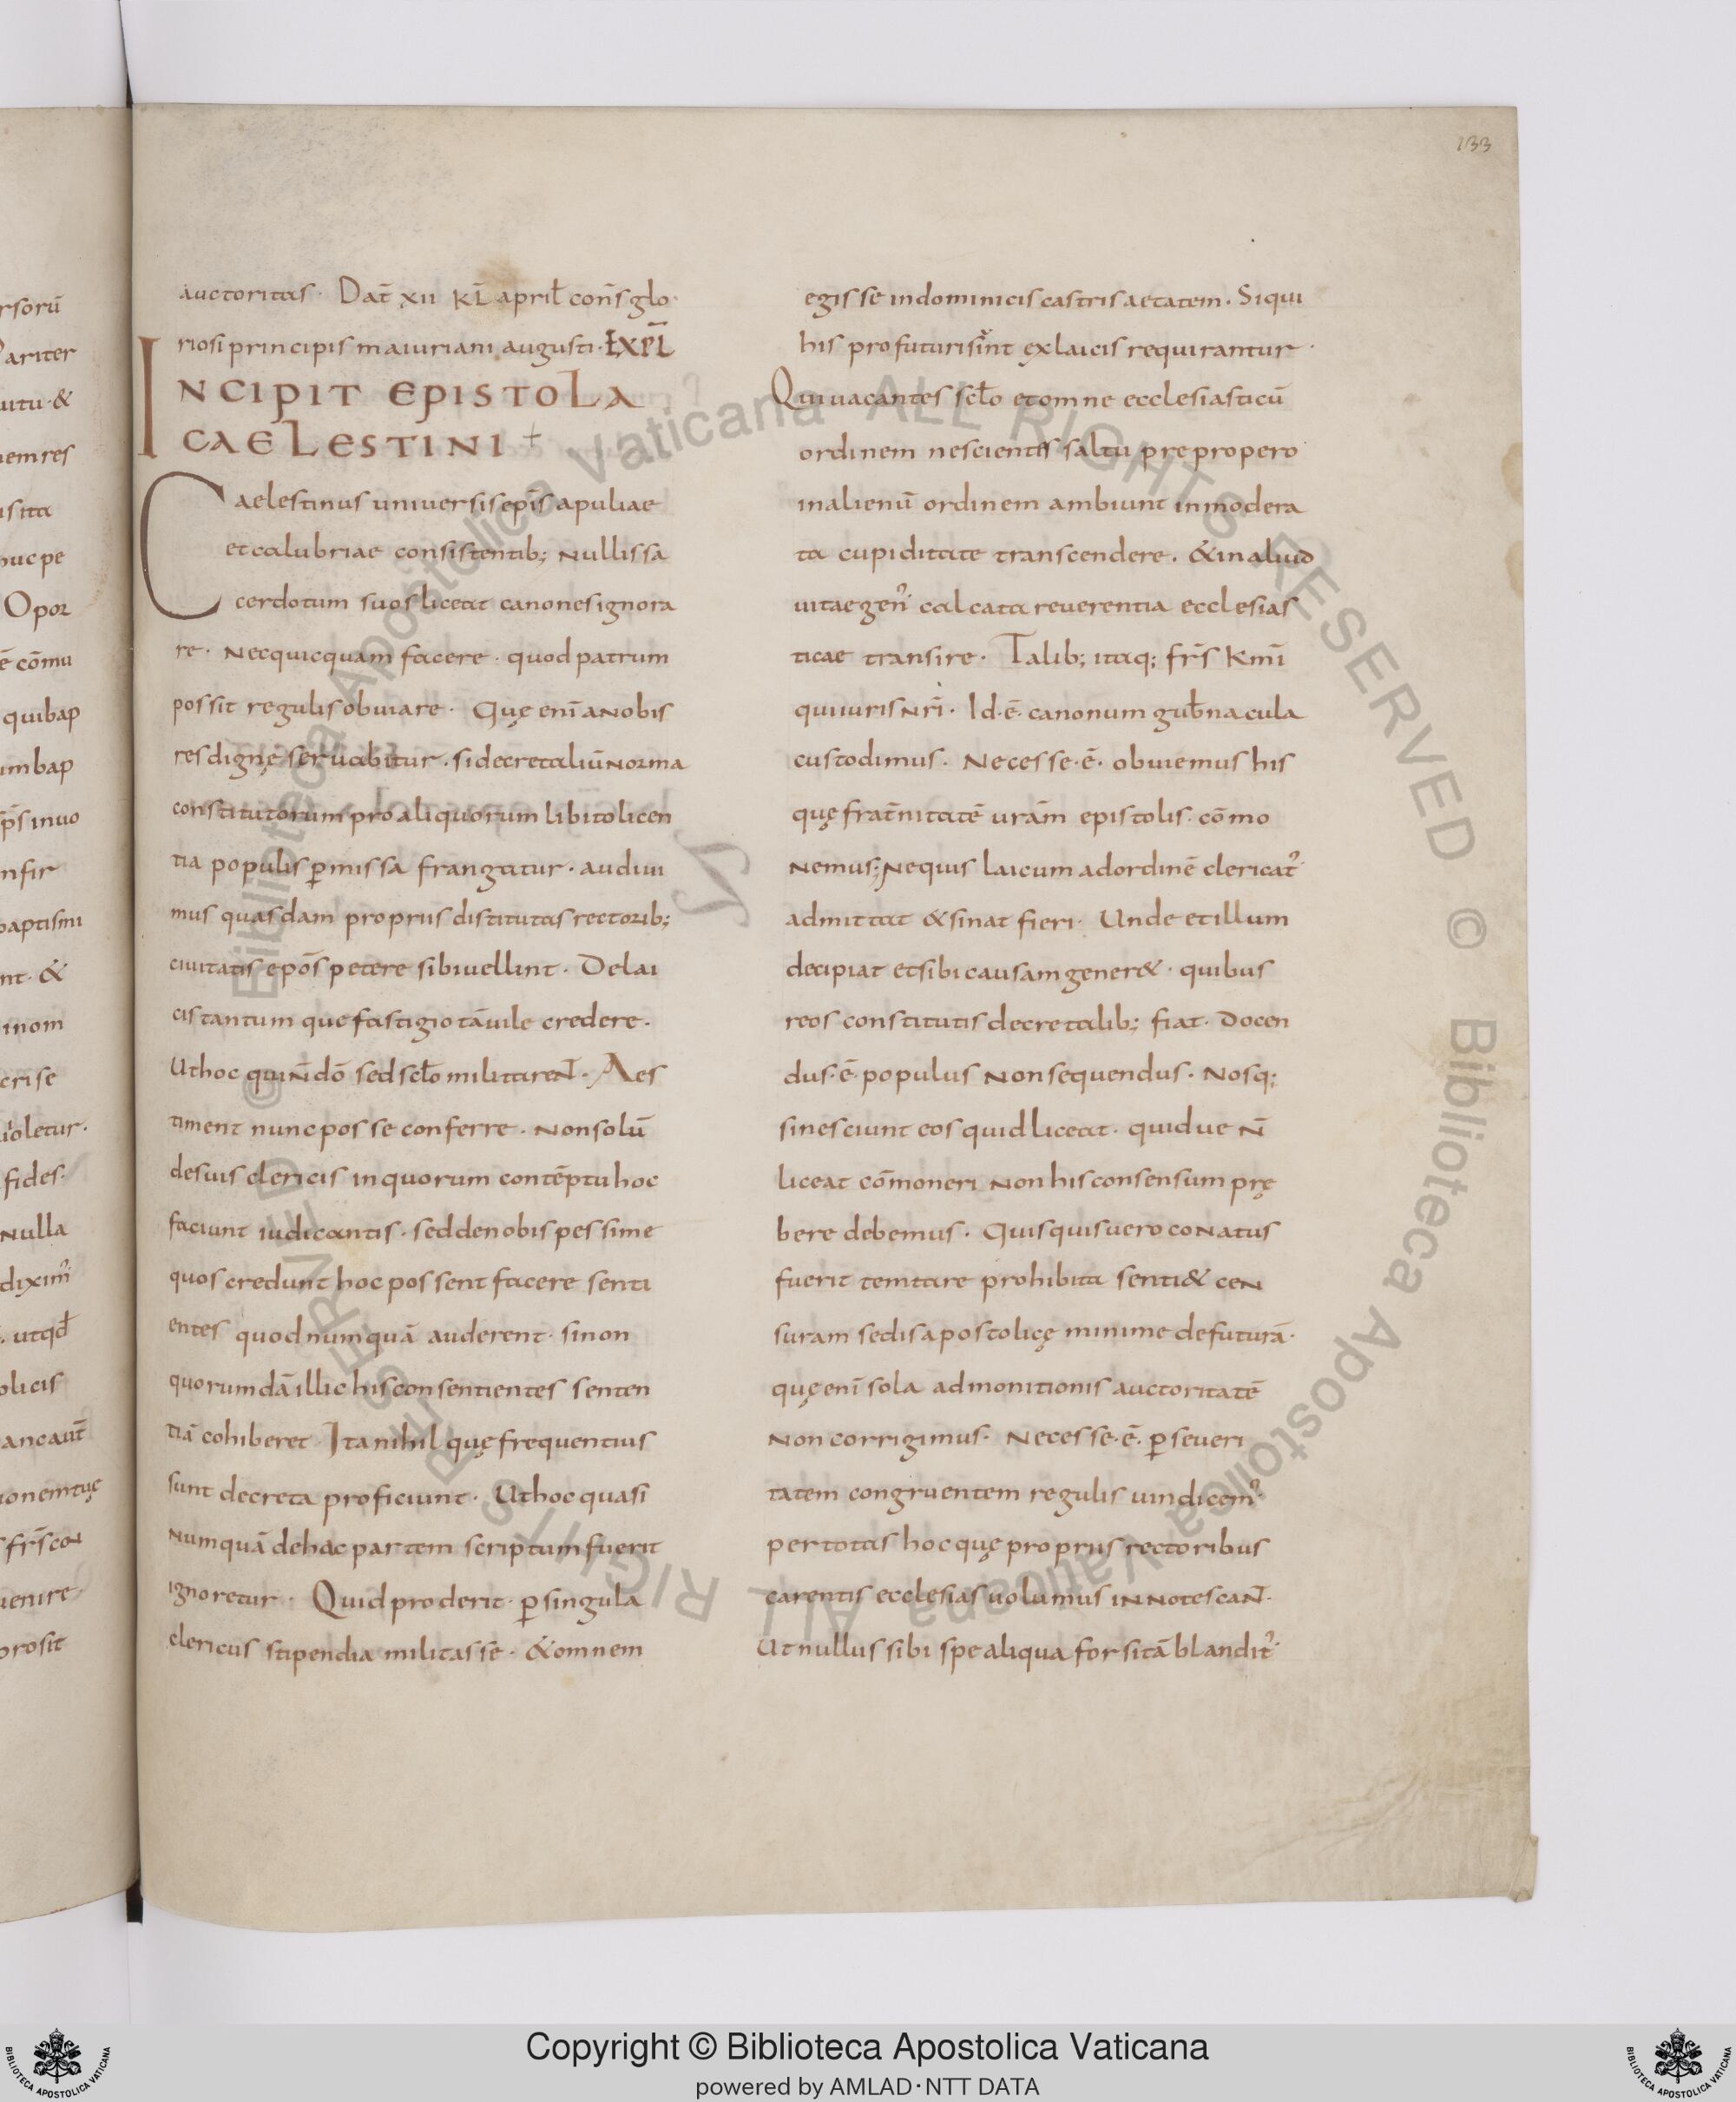 133
auctoritas · Dat̄ xii kl̄ april̄ con̄s glo
riosi principis maiuriani augusti · EXPL̄
INCIPIT EPISTOLA
CAELESTINI +
Caelestinus uniuersis ep̄is apuliae
et calubriae consistentib; Nullis sa
cerdotum suos liceat canones ignora
re · Nec quicquam facere · quod patrum
possit regulis obuiare · Quę enī a nobis
res digne seruabitur · si decretaliū norma
constitutorum pro aliquorum libito licen
tia populis ꝑmissa frangatur · audiui
mus quasdam propriis distitutas rectorib;
ciuitatis epōs petere sibi uellint · De lai
cis tantum que fastigio tā uile credere ·
Ut hoc qui n̄ dō sed scl̄o militaren̄t · Aes
timent nunc posse conferre · Non solū
de suis clericis in quorum contēptu hoc
faciunt iudicantis · sed de nobis pessime
quos credunt hoc possent facere senti
entes quod numquā auderent · si non
quorumdā illic his consentientes senten
tiā cohiberet Ita nihil quę frequentius
sunt decreta proficiunt · Ut hoc quasi
numquā de hac partem scriptum fuerit
ignoretur · Quid proderit · ꝑ singula
clericus stipendia militasse · & omnem
egisse in dominicis castris aetatem · Si qui
his profuturi sint ęx laicis requirantur ·
Qui uacantes scl̄o et omne ecclesiasticū
ordinem nescientes saltu prepropero
in alienū ordinem ambiunt inmodera
ta cupiditate transcendere · & in aliud
uitae gen᾿ calcata reuerentia ecclesias
ticae transire · Talib; itaq; fr̄s km̄i
qui iuris nr̄i · Id · ē · canonum gub̄nacula
custodimus · Necesse · ē · obuiemus his
quę frat̄nitatē urām epistolis · cōmo
nemus; Ne quis laicum ad ordinē clericat᾿
admittat & sinat fieri · Unde et illum
decipiat et sibi causam gener& · quibus
reos constitutis decretalib; fiat · Docen
dus · ē · populus non sequendus · Nosq;
si nesciunt eos quid liceat · quidue n̄
liceat cōmoneri non his consensum prę
bere debemus · Quisquis uero conatus
fuerit temtare prohibita senti& cen
suram sedis apostolicę minime defuturā ·
quę enī sola admonitionis auctoritatē
non corrigimus · Necesse · ē · ꝑ seueri
tatem congruentem regulis uindicem᾿
per totas hoc quę propriis rectoribus
carentis ecclesias uolumus innotescan̄t ·
Ut nullus sibi spe aliqua forsitā blandit᾿
Copyright © Biblioteca Apostolica Vaticana
powered by AMLAD·NTT DATA